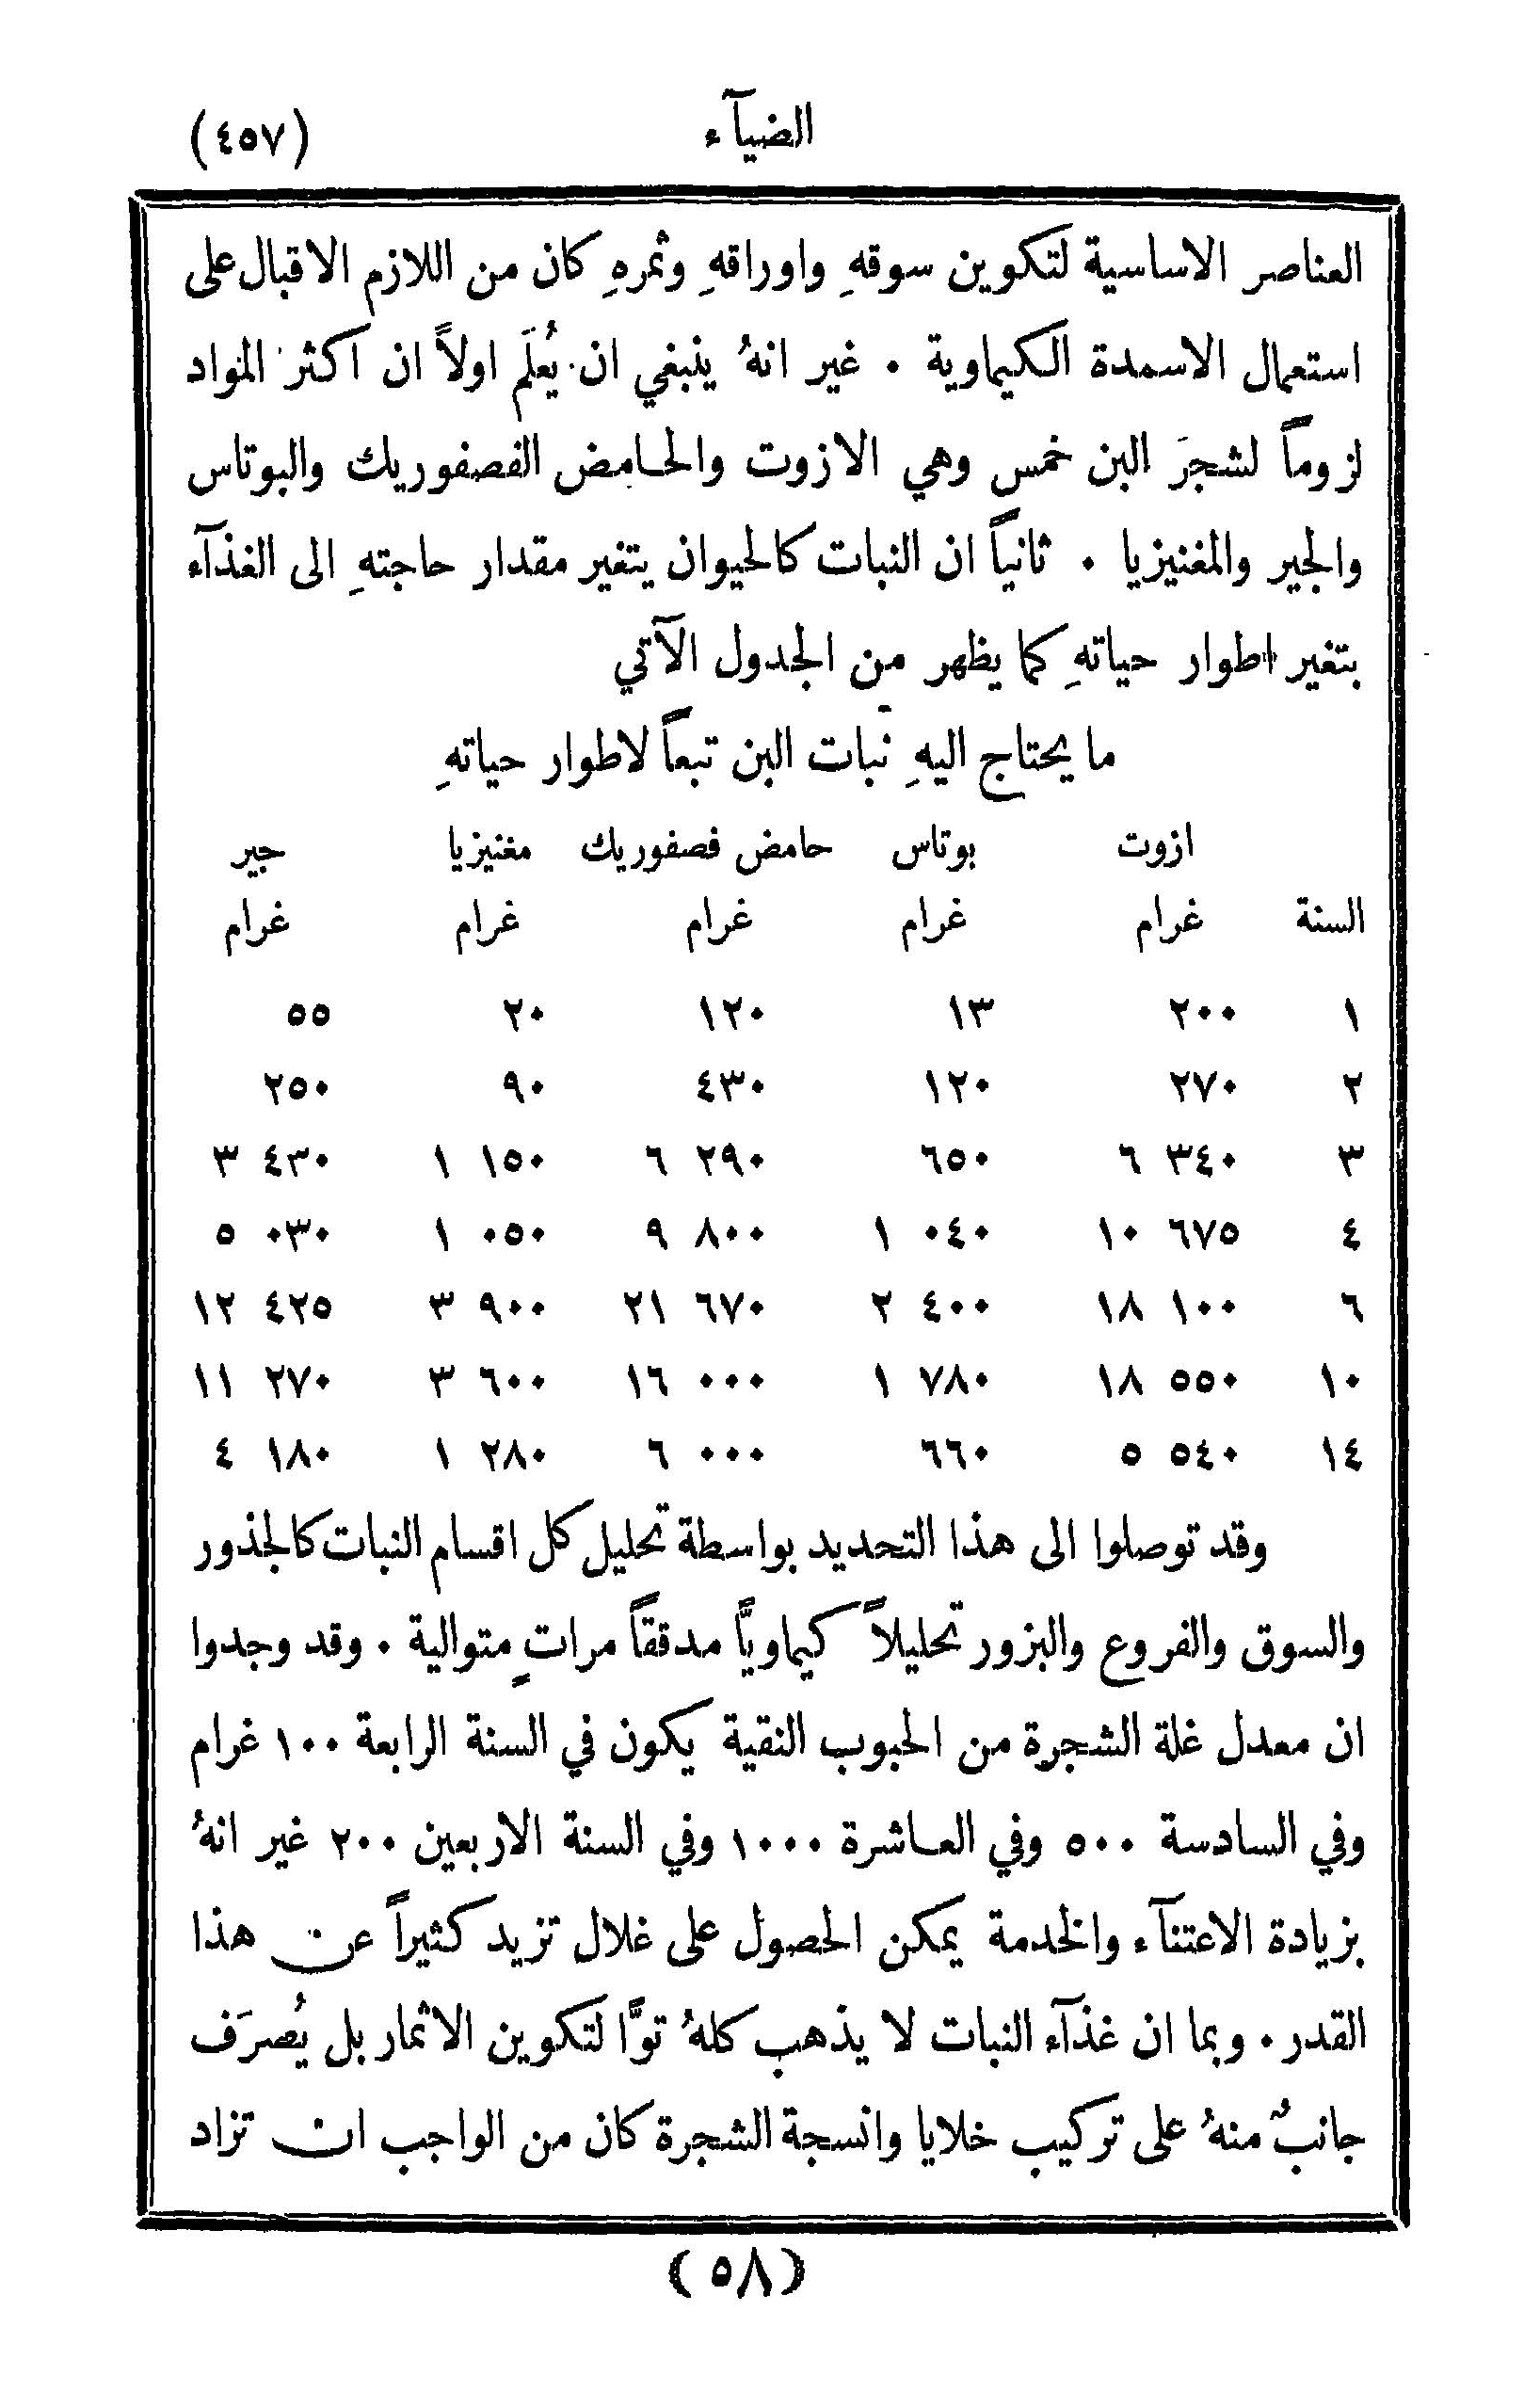 الضيآء
(٤٥٧)
العناصر الاساسية لتكوين سوقهِ واوراقهِ وثمرهِ كان من اللازم الاقبال على
استعمال الاسمدة الكيماوية ٠ غير انهُ ينبغي ان يُعلَم اولاً ان اكثر المواد
لزوماً لشجرَ البن خمس وهي الازوت والحامض الفصفوريك والبوتاس
والجير والمغنيزيا ٠ ثانياً ان النبات كالحيوان يتغير مقدار حاجتهِ الى الغذآء
بتغير اطوار حياتهِ كما يظهر من الجدول الآتي
ما يحتاج اليهِ نبات البن تبعاً لاطوار حياتهِ
ازوت بوتاس حامض فصفوريك مغنيزيا جير
السنة غرام غرام غرام غرام غرام
١ ٢٠٠ ١٣ ١٢٠ ٢٠ ٥٥
٢ ٢٧٠ ١٢٠ ٤٣٠ ٩٠ ٢٥٠
٣ ٦ ٣٤٠ ٦٥٠ ٦ ٢٩٠ ١ ١٥٠ ٣ ٤٣٠
٤ ١٠ ٦٧٥ ١ ٠٤٠ ٩ ٨٠٠ ١ ٠٥٠ ٥ ٠٣٠
٦ ١٨ ١٠٠ ٢ ٤٠٠ ٢١ ٦٧٠ ٣ ٩٠٠ ١٢ ٤٢٥
١٠ ١٨ ٥٥٠ ١ ٧٨٠ ١٦ ٠٠٠ ٣ ٦٠٠ ١١ ٢٧٠
١٤ ٥ ٥٤٠ ٦٦٠ ٦ ٠٠٠ ١ ٢٨٠ ٤ ١٨٠
وقد توصلوا الى هذا التحديد بواسطة تحليل كل اقسام النبات كالجذور
والسوق والفروع والبزور تحليلاً كيماويًّا مدققاً مراتٍ متوالية ٠ وقد وجدوا
ان معدل غلة الشجرة من الحبوب النقية يكون في السنة الرابعة ١٠٠ غرام
وفي السادسة ٥٠٠ وفي العاشرة ١٠٠٠ وفي السنة الاربعين ٢٠٠ غير انهُ
بزيادة الاعتنآء والخدمة يمكن الحصول على غلال تزيد كثيراً عن هذا
القدر ٠ وبما ان غذآء النبات لا يذهب كلهُ توًّا لتكوين الاثمار بل يُصرَف
جانبٌ منهُ على تركيب خلايا وانسجة الشجرة كان من الواجب ان تزاد
(٥٨)